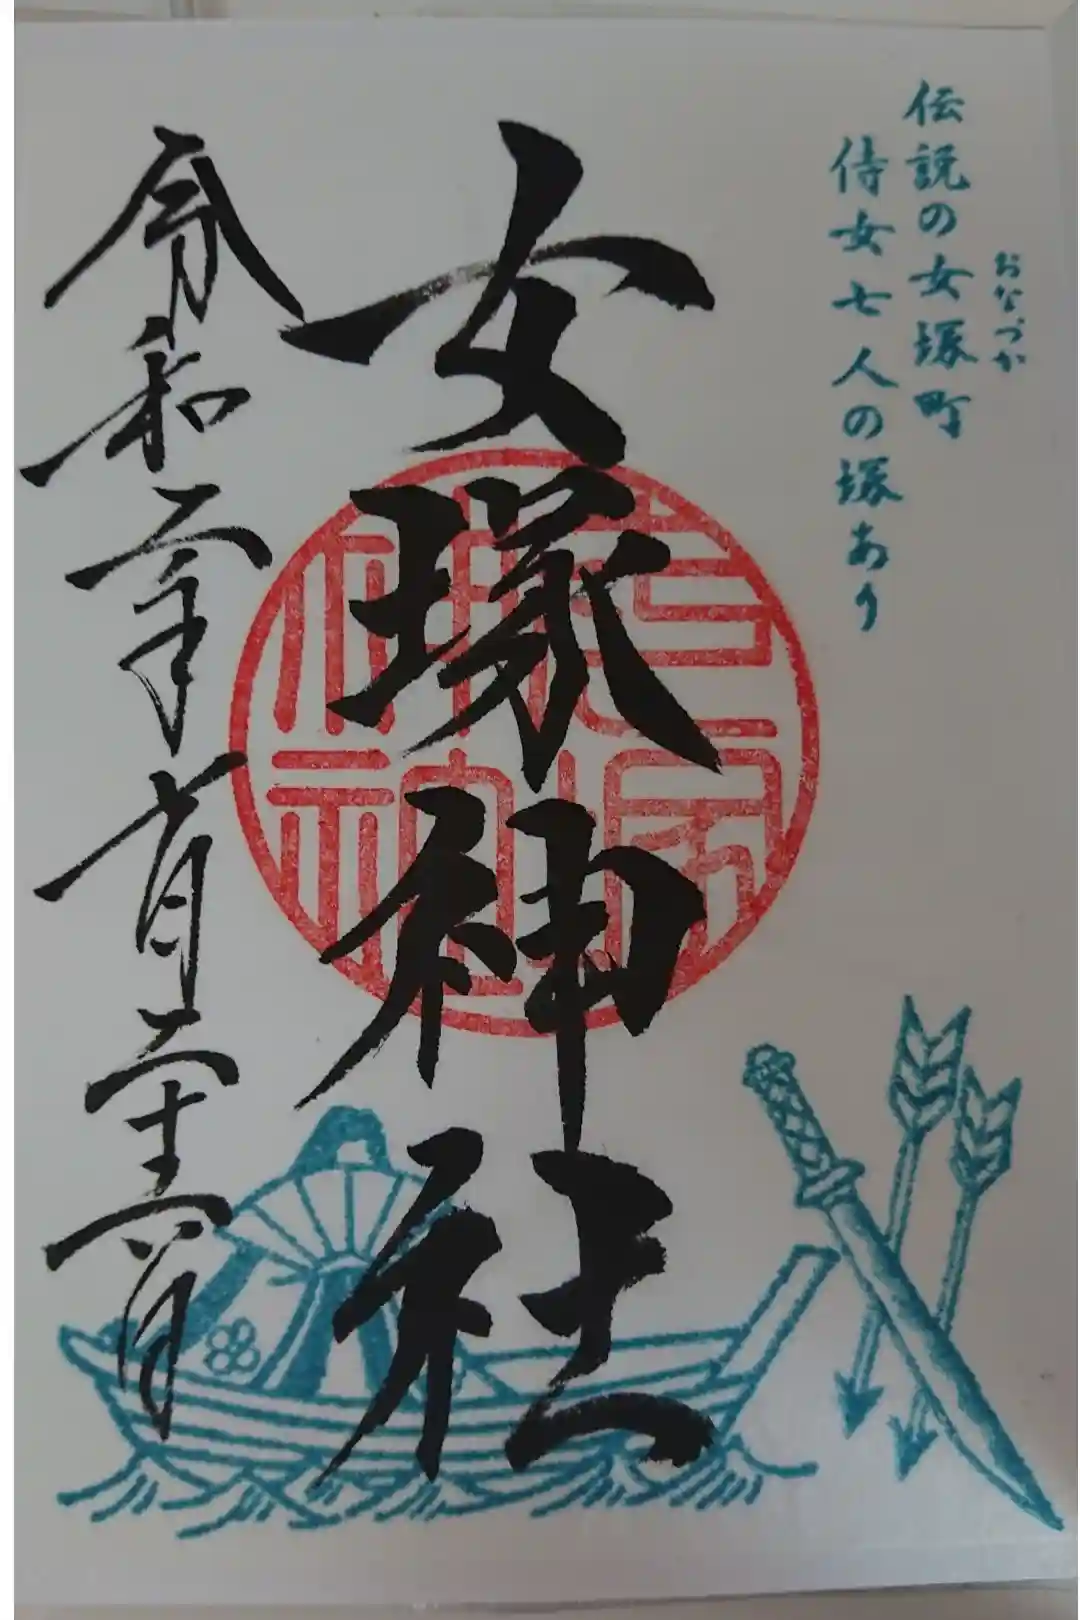 伝説の女塚町
おなづか
侍女七人の塚あり
女塚神社
令和二年二月二十六日